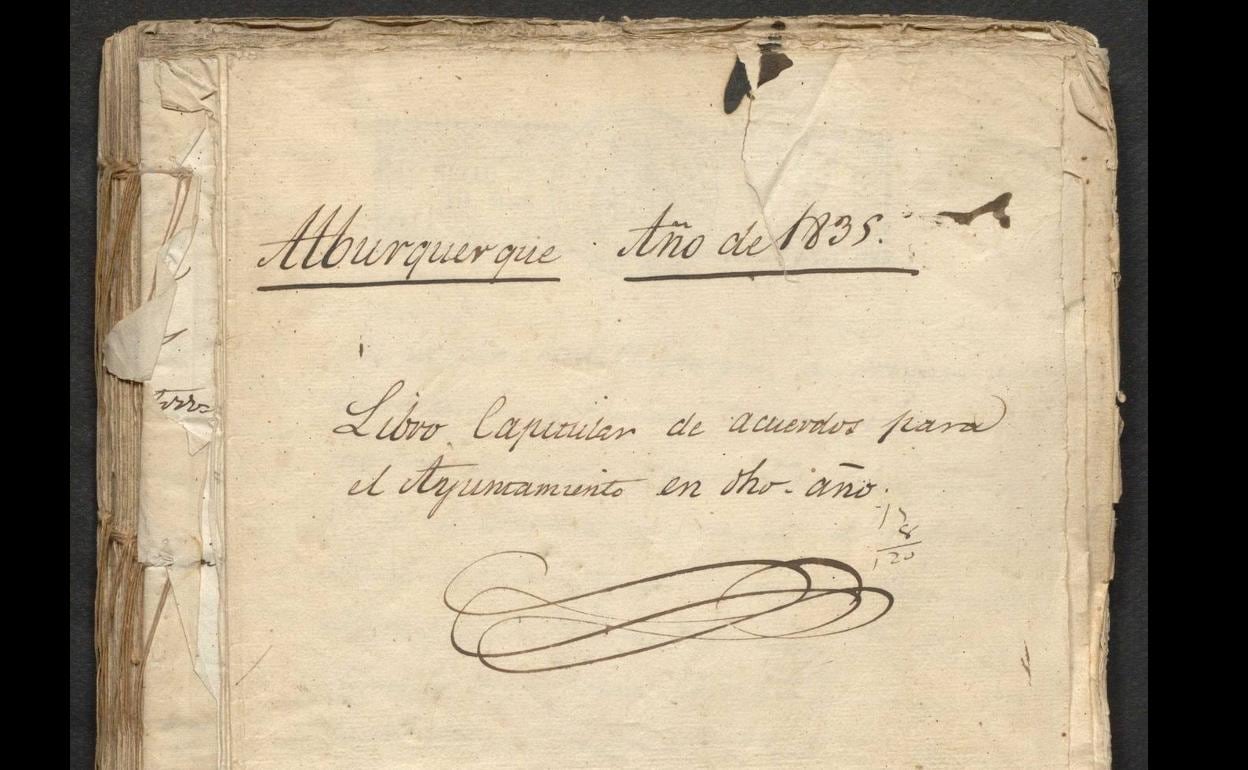 Alburquerque Año de 1835.
Libro Capitular de acuerdos para
el Ayuntamiento en dho. año.